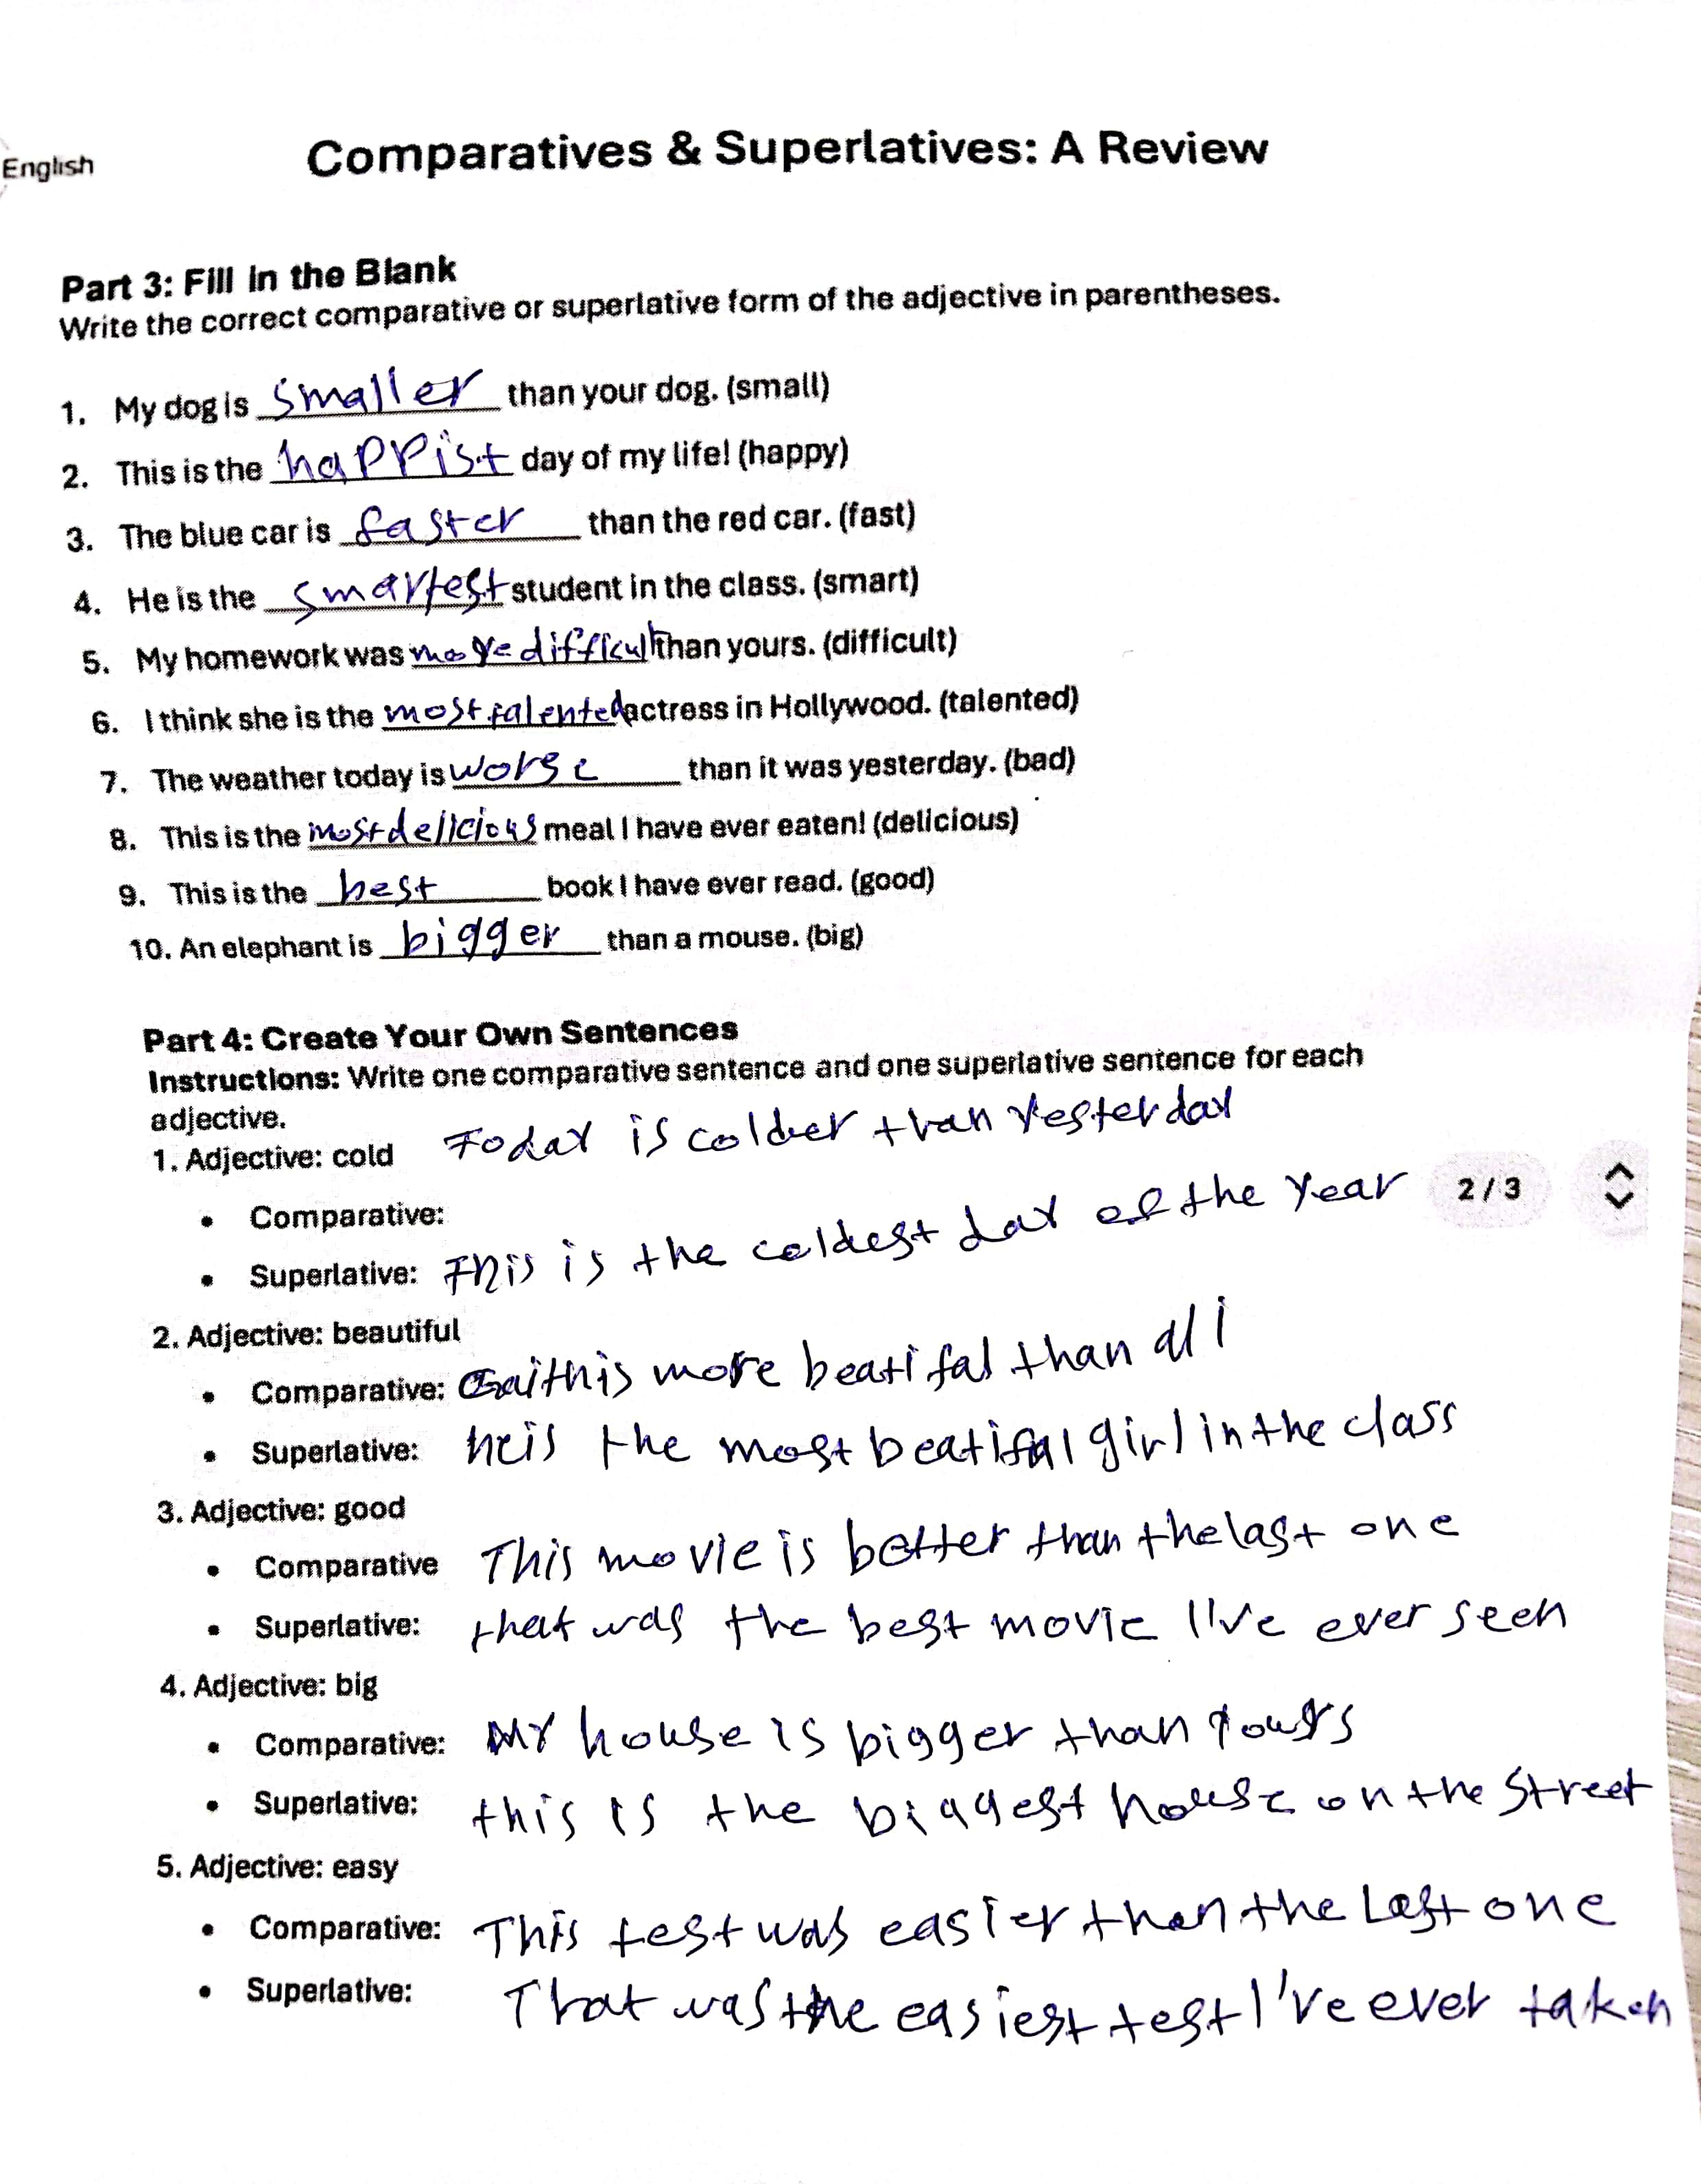 English
Comparatives & Superlatives: A Review
Part 3: Fill in the Blank
Write the correct comparative or superlative form of the adjective in parentheses.
1. My dog is smaller than your dog. (small)
2. This is the happist day of my life! (happy)
3. The blue car is faster than the red car. (fast)
4. He is the smartest student in the class. (smart)
5. My homework was more difficult than yours. (difficult)
6. I think she is the most talented actress in Hollywood. (talented)
7. The weather today is worse than it was yesterday. (bad)
8. This is the most delicious meal I have ever eaten! (delicious)
9. This is the best book I have ever read. (good)
10. An elephant is bigger than a mouse. (big)
Part 4: Create Your Own Sentences
Instructions: Write one comparative sentence and one superlative sentence for each
adjective.
1. Adjective: cold Today is colder than yesterday
• Comparative:
2 / 3
• Superlative: This is the coldest day of the year
2. Adjective: beautiful
• Comparative: is more beatifal than
• Superlative: is the most beatifal girl in the class
3. Adjective: good
• Comparative This movie is better than the last one
• Superlative: that was the best movie I've ever seen
4. Adjective: big
• Comparative: My house is bigger than yours
• Superlative: this is the biggest house on the street
5. Adjective: easy
• Comparative: This test was easier than the Last one
• Superlative: That was the easiest test I've ever taken